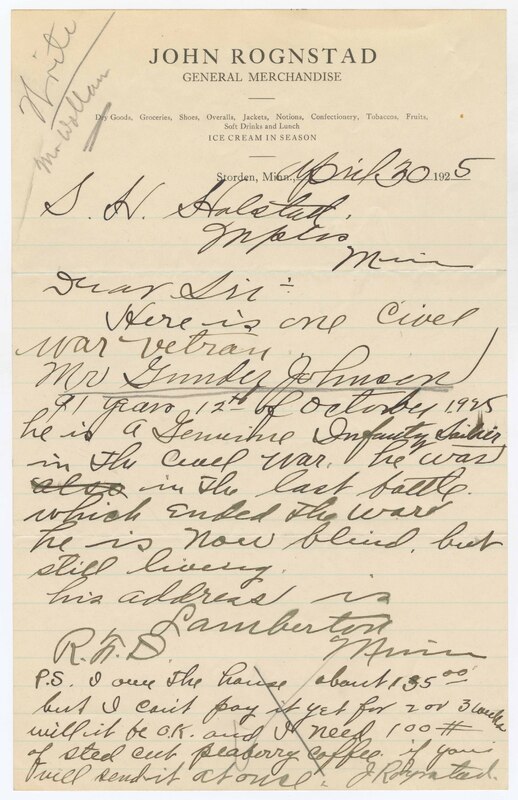 Write
Mr Wollan
JOHN ROGNSTAD
GENERAL MERCHANDISE
Dry Goods, Groceries, Shoes, Overalls, Jackets, Notions, Confectionery, Tobaccos, Fruits,
Soft Drinks and Lunch
ICE CREAM IN SEASON
Storden, Minn., April 30 1925
S. H. Holstad,
Mpls
Minn
Dear Sir:
Here is one Civel
war vetran
Mr Gunder Johnson
91 years 12th of October 1925
he is a Genuine Infantry Soldier
in the Civel War. he was
also in the last battle.
which ended the ward
he is now blind, but
still liveing.
his address is
Lamberton
R.F.D. Minn
P.S. I owe the house about 135 00
but I can't pay it yet for 2 or 3 weeks
will it be O.K. and I need 100 #
of steel cut peaberry coffee if you
will send it at once. J Rognstad.